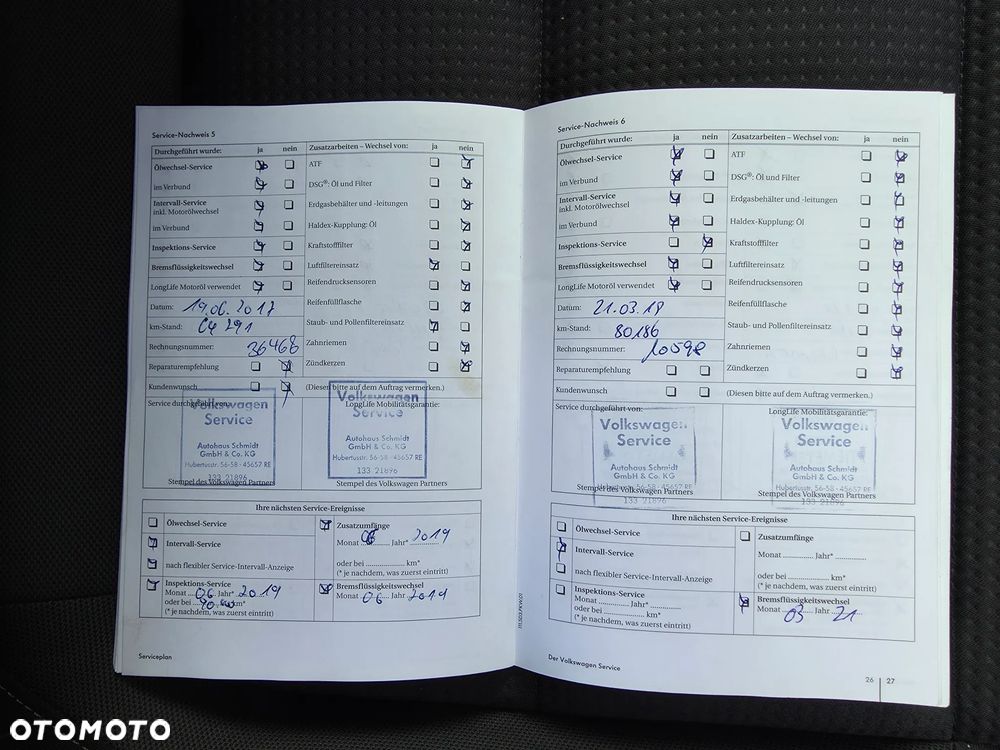 Service-Nachweis 5
Durchgeführt wurde: ja nein
Zusatzarbeiten – Wechsel von: ja nein
Ölwechsel-Service
im Verbund
Intervall-Service
inkl. Motorölwechsel
im Verbund
Inspektions-Service
Bremsflüssigkeitswechsel
LongLife Motoröl verwendet
Datum: 19.06.2017
km-Stand:
Rechnungsnummer: 36468
Reparaturempfehlung
Kundenwunsch
ATF
DSG®: Öl und Filter
Erdgasbehälter und -leitungen
Haldex-Kupplung: Öl
Kraftstofffilter
Luftfiltereinsatz
Reifendrucksensoren
Reifenfüllflasche
Staub- und Pollenfiltereinsatz
Zahnriemen
Zündkerzen
(Diesen bitte auf dem Auftrag vermerken.)
Service durchgeführt von:
Volkswagen
Service
Autohaus Schmidt
GmbH & Co. KG
Hubertusstr. 56-58 · 45657 RE
133 21896
Stempel des Volkswagen Partners
LongLife Mobilitätsgarantie:
Volkswagen
Service
Autohaus Schmidt
GmbH & Co. KG
Hubertusstr. 56-58 · 45657 RE
133 21896
Stempel des Volkswagen Partners
Ihre nächsten Service-Ereignisse
Ölwechsel-Service
Intervall-Service
nach flexibler Service-Intervall-Anzeige
Inspektions-Service
Monat 06 Jahr* 2019
oder bei km*
(* je nachdem, was zuerst eintritt)
Zusatzumfänge
Monat 06 Jahr* 2019
oder bei km*
(* je nachdem, was zuerst eintritt)
Bremsflüssigkeitswechsel
Monat 06 Jahr 2019
Serviceplan
Service-Nachweis 6
Durchgeführt wurde: ja nein
Zusatzarbeiten – Wechsel von: ja nein
Ölwechsel-Service
im Verbund
Intervall-Service
inkl. Motorölwechsel
im Verbund
Inspektions-Service
Bremsflüssigkeitswechsel
LongLife Motoröl verwendet
Datum: 21.03.19
km-Stand: 80186
Rechnungsnummer: 10598
Reparaturempfehlung
Kundenwunsch
ATF
DSG®: Öl und Filter
Erdgasbehälter und -leitungen
Haldex-Kupplung: Öl
Kraftstofffilter
Luftfiltereinsatz
Reifendrucksensoren
Reifenfüllflasche
Staub- und Pollenfiltereinsatz
Zahnriemen
Zündkerzen
(Diesen bitte auf dem Auftrag vermerken.)
Service durchgeführt von:
Volkswagen
Service
Autohaus Schmidt
GmbH & Co. KG
Hubertusstr. 56-58 · 45657 RE
133 21896
Stempel des Volkswagen Partners
LongLife Mobilitätsgarantie:
Volkswagen
Service
Autohaus Schmidt
GmbH & Co. KG
Hubertusstr. 56-58 · 45657 RE
133 21896
Stempel des Volkswagen Partners
Ihre nächsten Service-Ereignisse
Ölwechsel-Service
Intervall-Service
nach flexibler Service-Intervall-Anzeige
Inspektions-Service
Monat Jahr*
oder bei km*
(* je nachdem, was zuerst eintritt)
Zusatzumfänge
Monat Jahr*
oder bei km*
(* je nachdem, was zuerst eintritt)
Bremsflüssigkeitswechsel
Monat 03 Jahr 21
Der Volkswagen Service
26 27
OTOMOTO